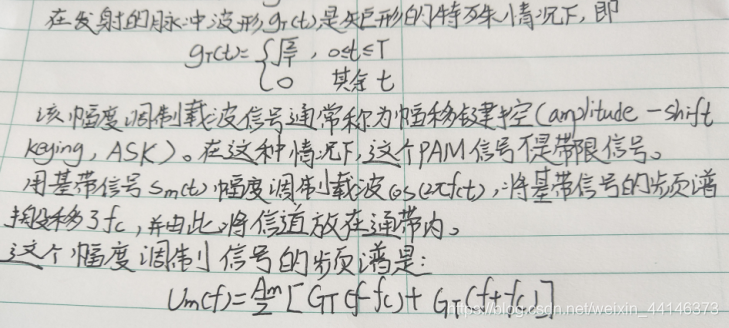 在发射的脉冲波形gT(t)是矩形的特殊情况下,即
gT(t)= { √(2/T) , 0≤t≤T
0 其余 t
该幅度调制载波信号通常称为幅移键控(amplitude-shift
keying, ASK)。在这种情况下,这个PAM信号不是带限信号。
用基带信号Sm(t)幅度调制载波cos(2πfct),将基带信号的频谱
搬移了fc,并由此将信道放在通带内。
这个幅度调制信号的频谱是:
Um(f)=Am/2[GT(f-fc)+GT(f+fc)]
https://blog.csdn.net/weixin_44146373